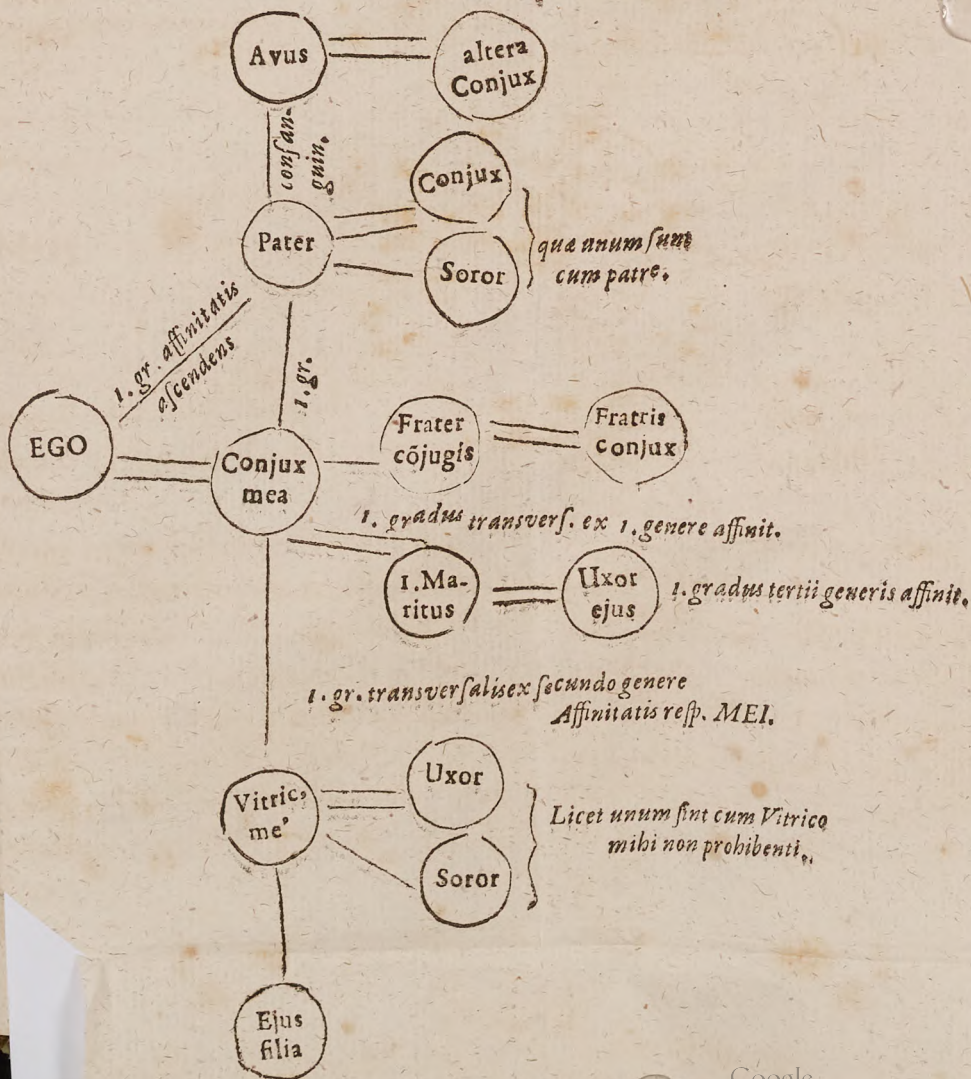 Avus
altera
Conjux
conſan-
guin.
Conjux
Pater
Soror
quæ unum ſunt
cum patre.
1. gr. affinitatis
aſcendens
1. gr.
EGO
Conjux
mea
Frater
cõjugis
Fratris
conjux
1. gradus tranſverſ. ex 1. genere affinit.
1. Ma-
ritus
Uxor
ejus
1. gradus tertii generis affinit.
1. gr. tranſverſalis ex ſecundo genere
Affinitatis reſp. MEI.
Vitric,
me'
Uxor
Soror
Licet unum ſint cum Vitrico
mihi non prohibenti.
Ejus
filia
Google